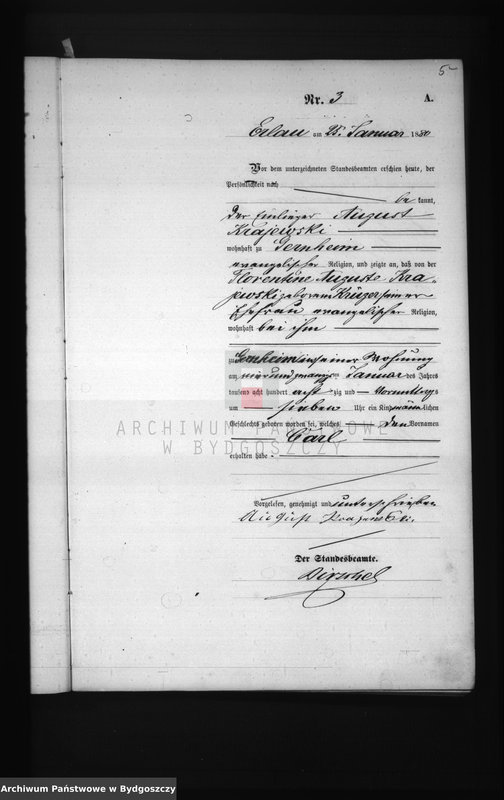 5
Nr. 3 A.
Erlau am 25. Januar 1880
Vor dem unterzeichneten Standesbeamten erschien heute, der
Persönlichkeit nach
be kannt,
der Einlieger August
Krajewski
wohnhaft zu Gernheim
evangelischer Religion, und zeigte an, daß von der
Florentine Auguste Kra-
jewski geborenen Krüger seiner
Ehefrau evangelischer Religion,
wohnhaft bei ihm
zu Gernheim in seiner Wohnung
am vierundzwanzigsten Januar des Jahres
tausend acht hundert achtzig und Vormittags
um sieben Uhr ein Kind männlichen
Geschlechts geboren worden sei, welches den Vornamen
Carl
erhalten habe
Vorgelesen, genehmigt und unterschrieben
August Krajewski.
Der Standesbeamte.
ARCHIWUM PAŃSTWOWE
W BYDGOSZCZY
Archiwum Państwowe w Bydgoszczy